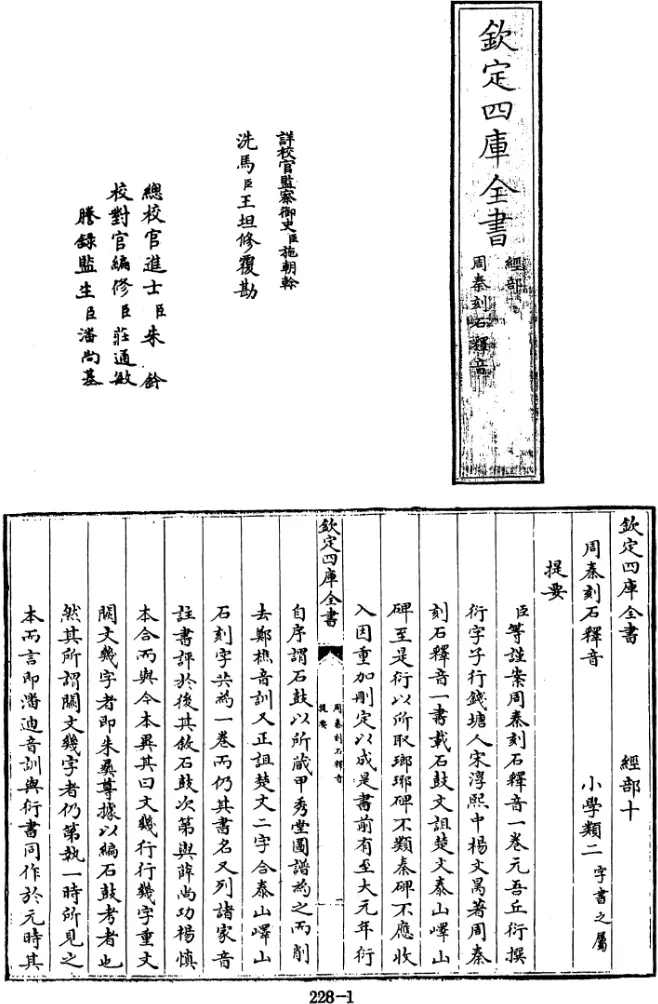 欽定四庫全書
經部
周秦刻石釋音
詳校官監察御史臣施朝榦
洗馬臣王坦修覆勘
總校官進士臣朱鈐
校對官編修臣莊通敏
謄錄監生臣潘尚基
欽定四庫全書 經部十
周秦刻石釋音 小學類二字書之屬
提要
臣等謹案周秦刻石釋音一卷元吾丘衍撰
衍字子行錢塘人宋淳熙中楊文昺著周秦
刻石釋音一書載石鼓文詛楚文泰山嶧山
碑至是衍以所取瑯琊碑不類秦碑不應收
入因重加刪定以成是書前有至大元年衍
欽定四庫全書
周秦刻石釋音
提要
二
自序謂石鼓以所蔵甲秀堂圖譜為之而削
去鄭樵音訓又正詛楚文二字合泰山嶧山
石刻字共為一卷而仍其書名又列諸家音
註書評於後其敘石鼓次第與薛尚功楊慎
本合而與今本異其曰文幾行行幾字重文
闕文幾字者即朱彝尊據以編石鼓考者也
然其所謂闕文幾字者仍第執一時所見之
本而言即潘迪音訓與衍書同作於元時其
228-1